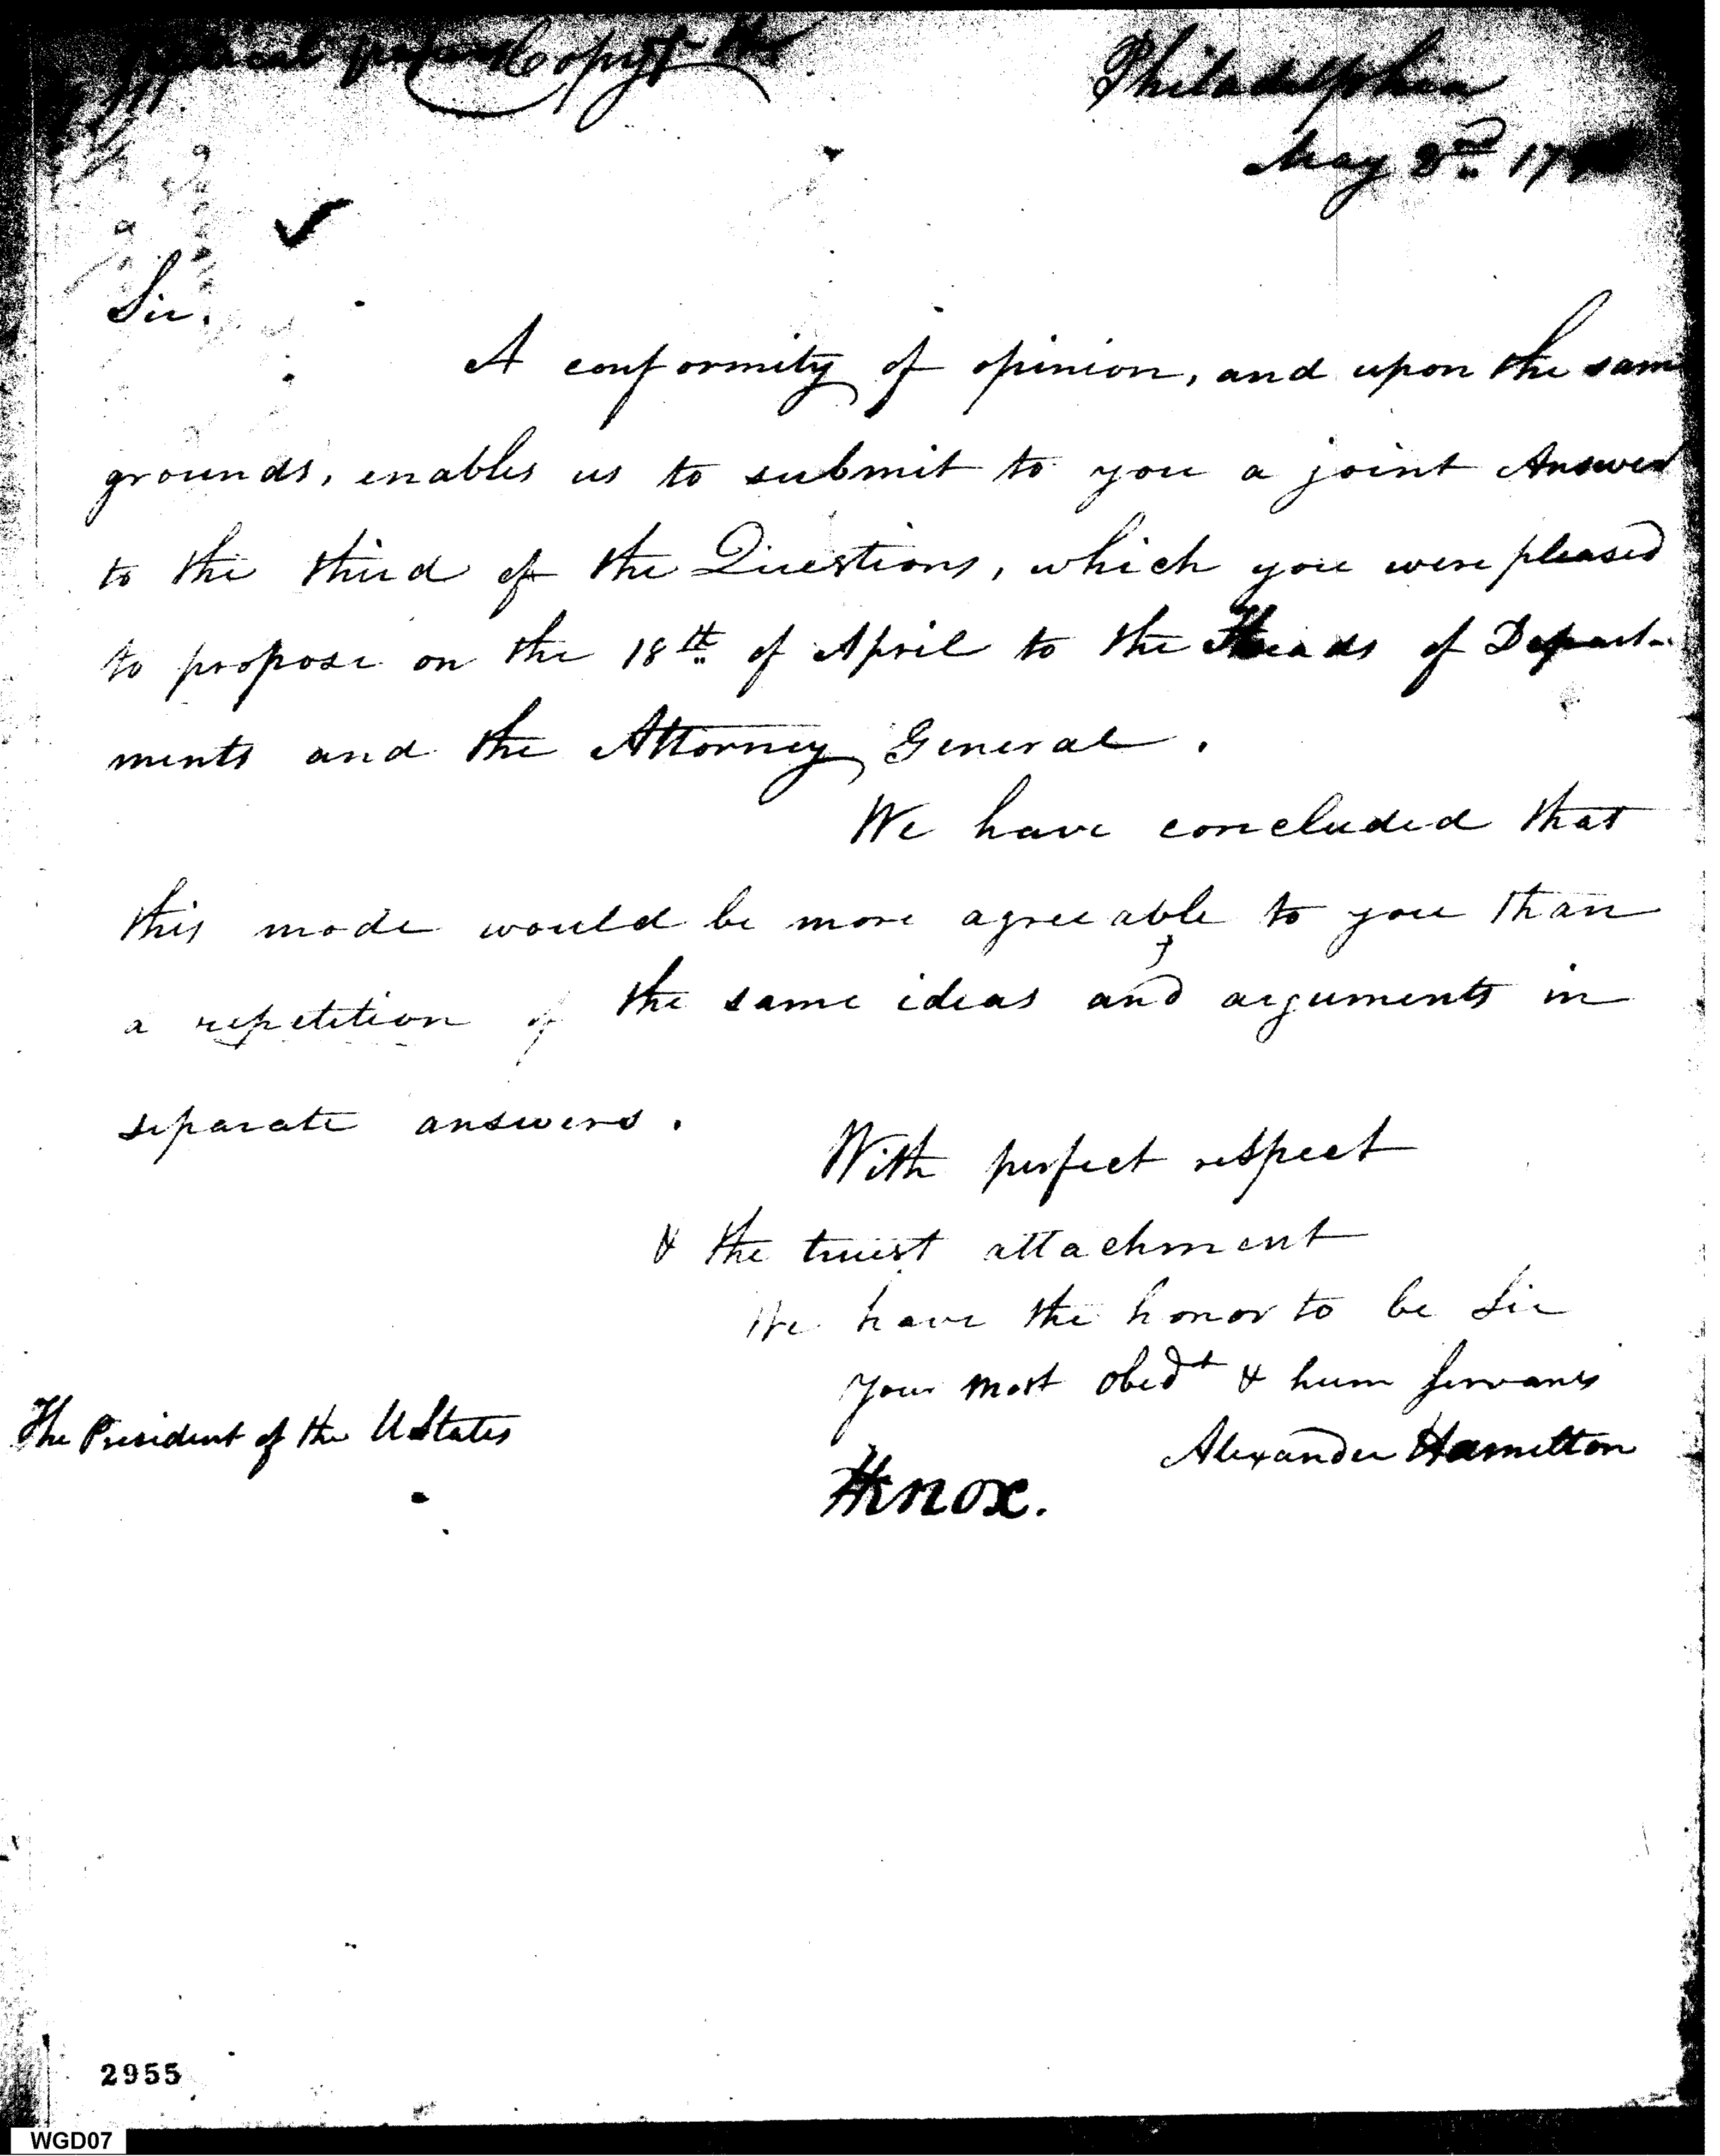 Copy
Philadelphia
May 2nd. 17
Sir.
A conformity of opinion, and upon the sam
grounds, enables us to submit to you a joint Answer
to the third of the Questions, which you were pleased
to propose on the 18th. of April to the Heads of Depart-
ments and the Attorney General.
We have concluded that
this mode would be more agreeable to you than
a repetition of the same ideas and arguments in
separate answers.
With perfect respect
& the truest attachment
We have the honor to be Sir
Your most obedt & hum servants
The President of the UStates
Alexander Hamilton
HKnox.
2955
WGD07